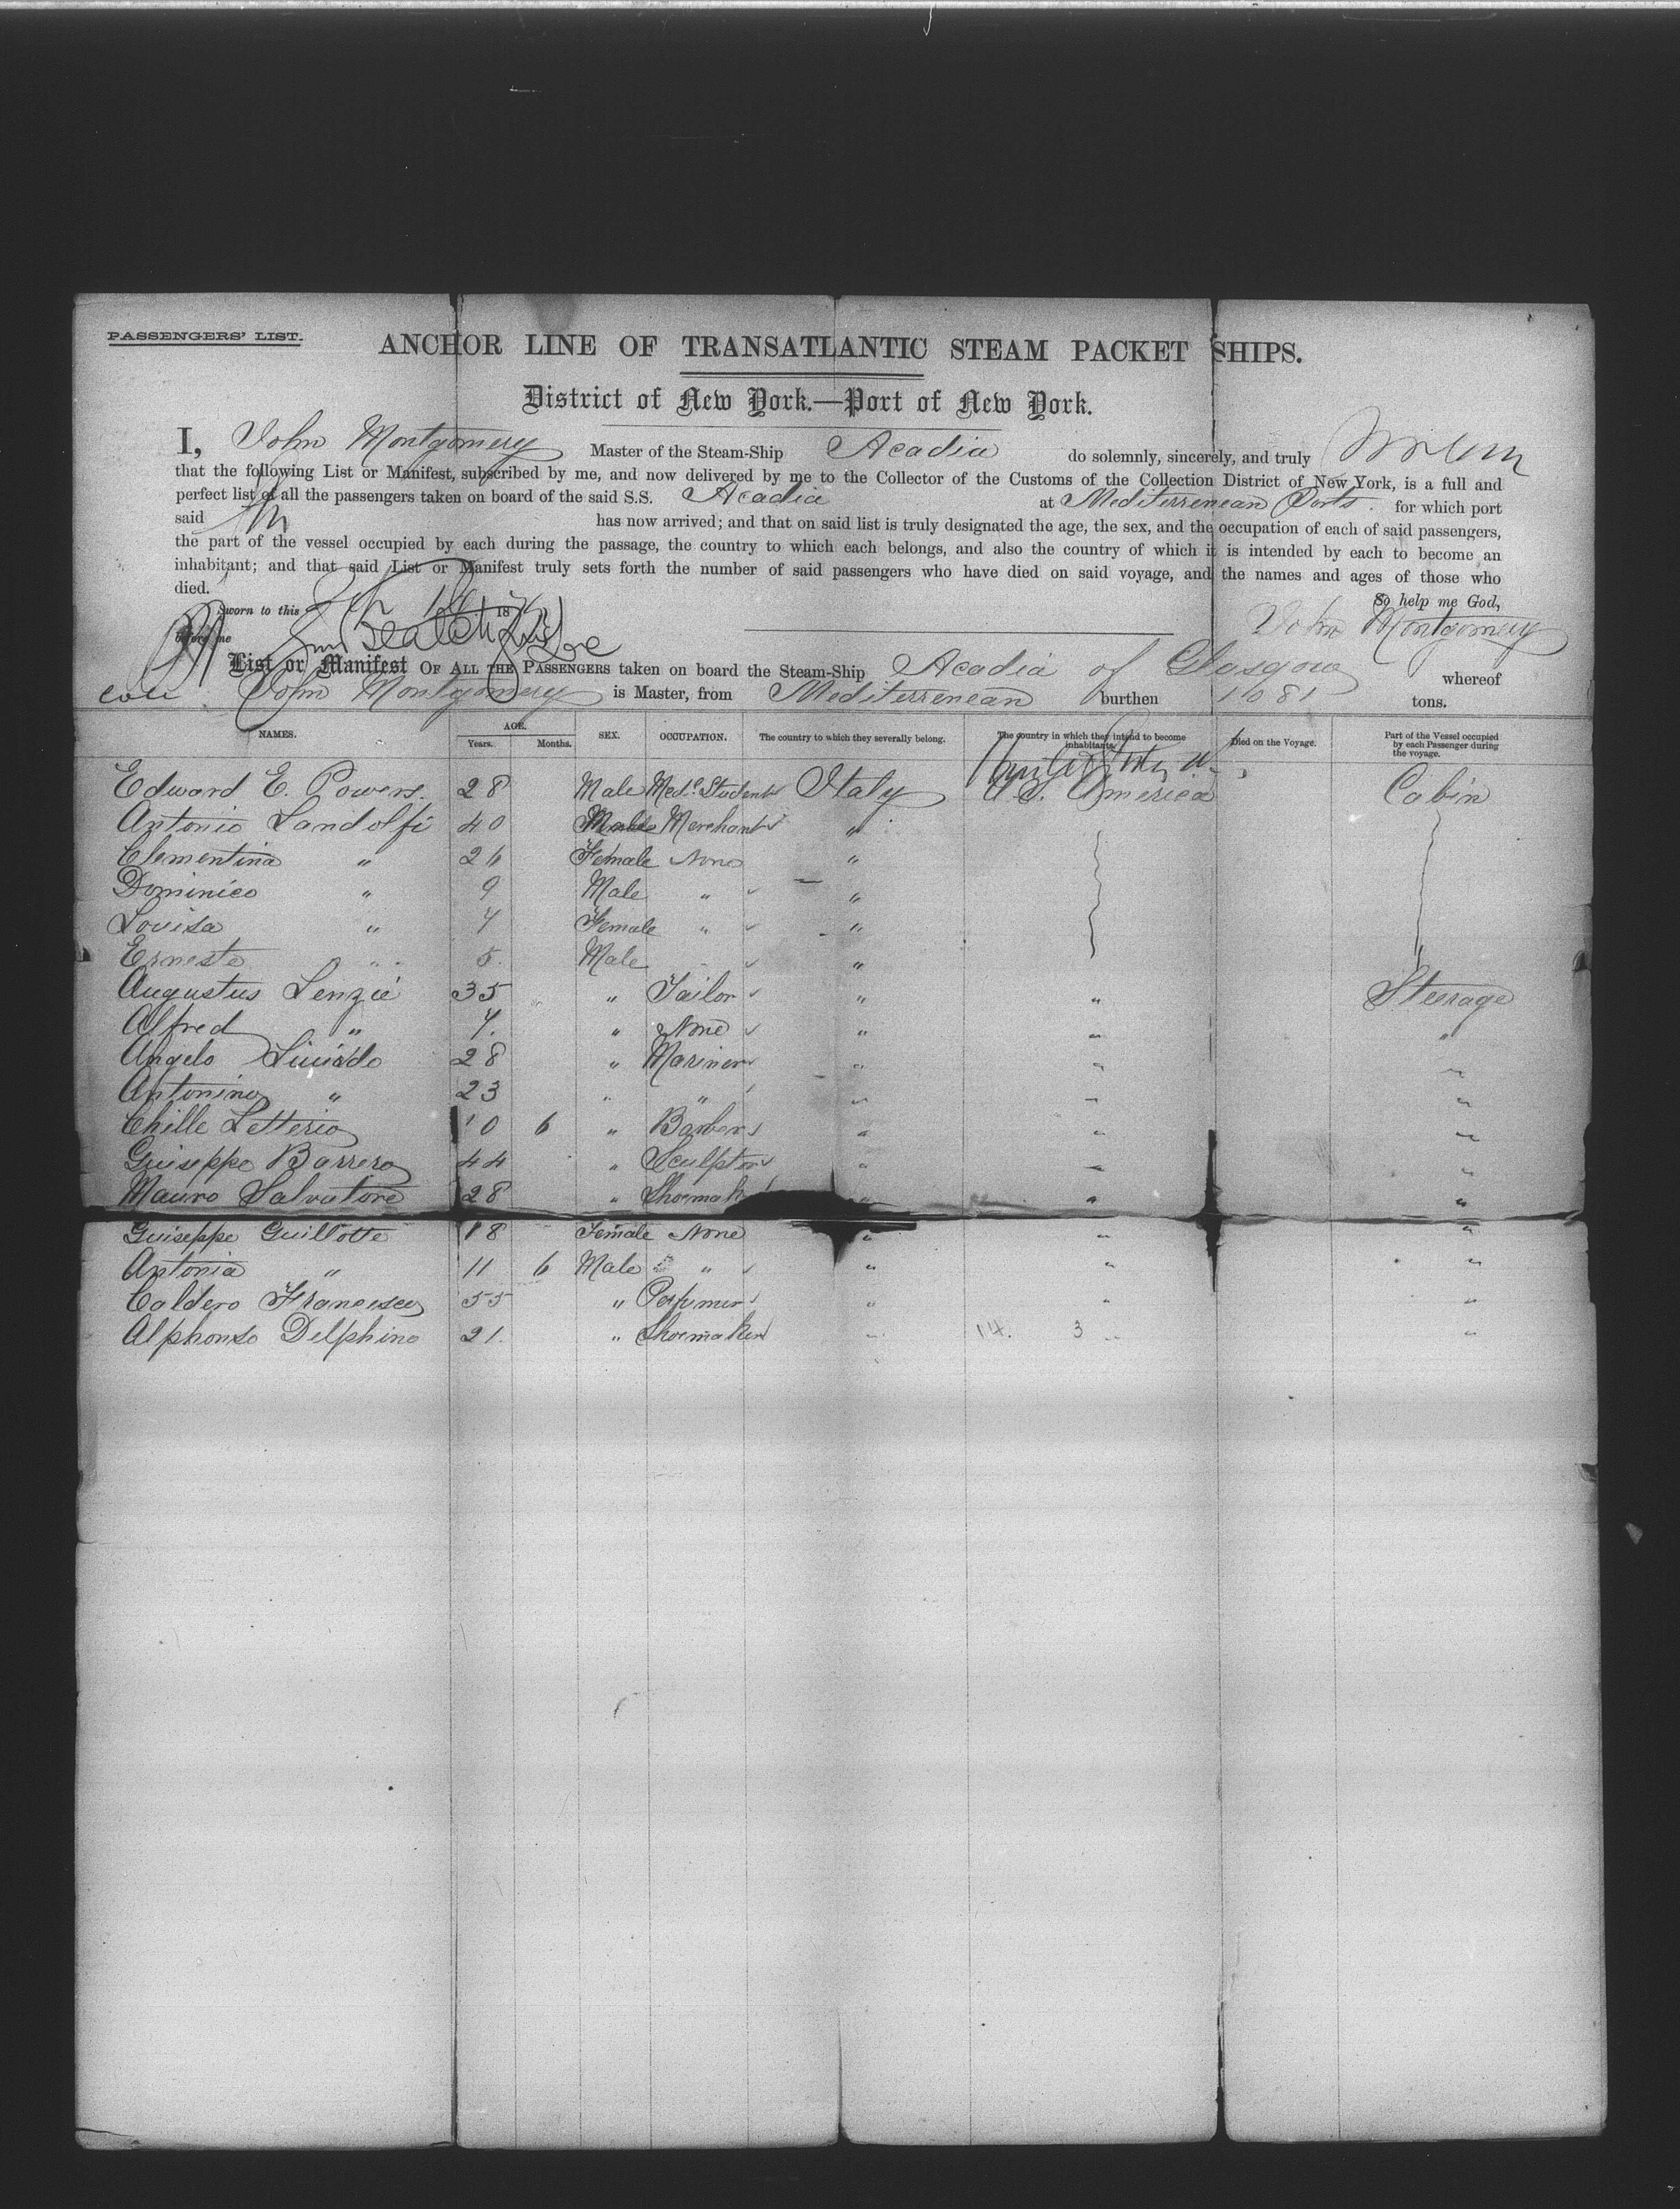 PASSENGERS' LIST.
ANCHOR LINE OF TRANSATLANTIC STEAM PACKET SHIPS.
District of New York.—Port of New York.
I, John Montgomery Master of the Steam-Ship Acadia do solemnly, sincerely, and truly swear
that the following List or Manifest, subscribed by me, and now delivered by me to the Collector of the Customs of the Collection District of New York, is a full and
perfect list of all the passengers taken on board of the said S.S. Acadia at Mediterrenean Ports. for which port
said has now arrived; and that on said list is truly designated the age, the sex, and the occupation of each of said passengers,
the part of the vessel occupied by each during the passage, the country to which each belongs, and also the country of which it is intended by each to become an
inhabitant; and that said List or Manifest truly sets forth the number of said passengers who have died on said voyage, and the names and ages of those who
died.
So help me God,
Sworn to this 18
before me
John Montgomery
List or Manifest OF ALL THE PASSENGERS taken on board the Steam-Ship Acadia of Glasgow whereof
John Montgomery is Master, from Mediterrenean burthen 1081 tons.
NAMES. AGE. Years. Months. SEX. OCCUPATION. The country to which they severally belong. The country in which they intend to become inhabitants. Died on the Voyage. Part of the Vessel occupied by each Passenger during the voyage.
Edward E. Powers. 28 Male Med. Student Italy U.S. America Cabin
Antonio Landolfi 40 Male Merchant "
Clementina " 26 Female None "
Dominico " 9 Male " "
Lovisa " 7 Female " "
Ernesto " 5. Male "
Augustus Lenzie 35 " Tailor " " Steerage
Alfred " 7. " None " " "
Angelo 28 " Mariner " " "
Antonino " 23 " " " " "
Chille Letterio 10 6 " Barber " " "
Guiseppe Barrero 44 " Sculptor " " "
Mauro Salvatore 28 " Shoemak " " "
Guiseppe Guillotte 18 Female None " " "
Antonia " 11 6 Male " " " "
Caldero Francisco 55 " Perfumer " " "
Alphonso Delphino 21. " Shoemaker " 14. 3 "